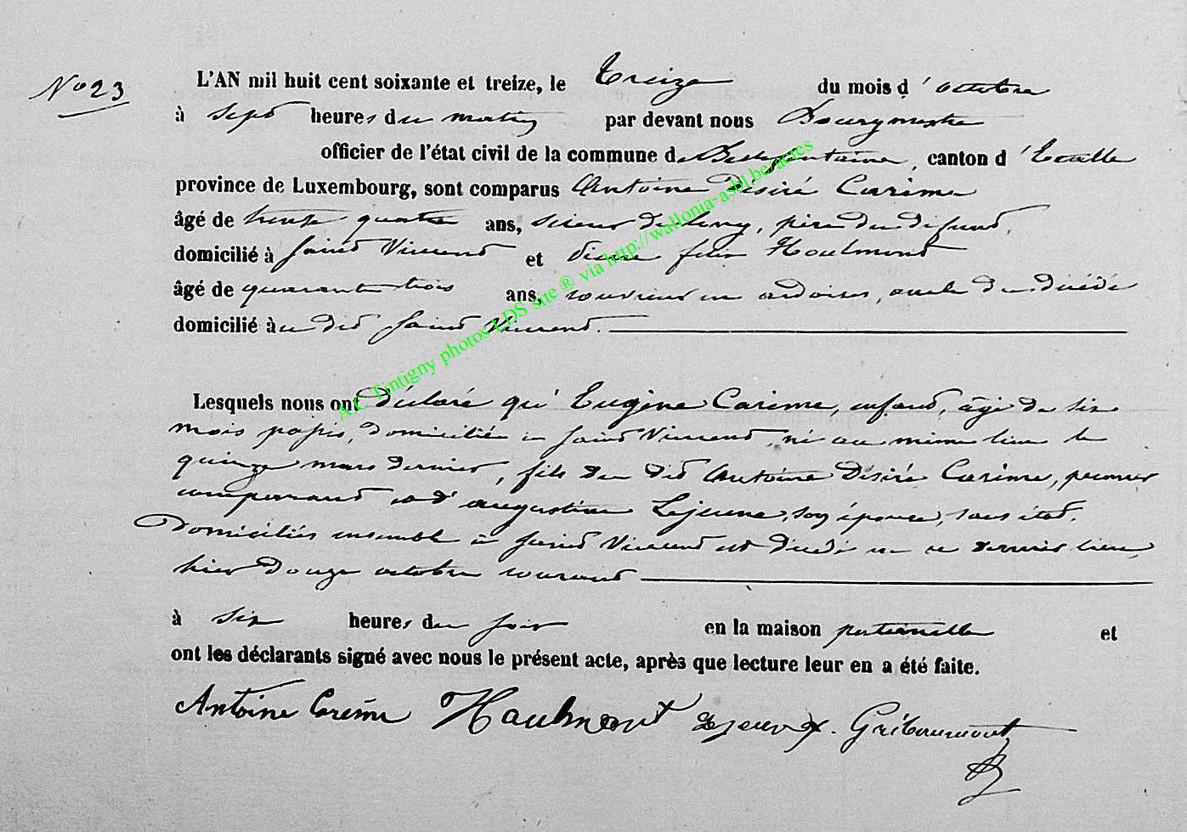 No 23
L'AN mil huit cent soixante et treize, le treize du mois d'octobre
à sept heures du matin par devant nous Bourgmestre
officier de l'état civil de la commune de Bellefontaine, canton d'Etalle
province de Luxembourg, sont comparus Antoine Désiré Carème
âgé de trente quatre ans, scieur de long, père du défunt,
domicilié à Saint Vincent et félix Haulmont
âgé de quarante trois ans, ouvrier en ardoises, oncle du décédé
domicilié à u dit Saint Vincent.
A.C. Tintigny photos LDS site ® via http://wallonia-asbl.be/actes
Lesquels nous ont déclaré qu'Eugène Carème, enfant, âgé de six
mois passés, domicilié à Saint Vincent, né au même lieu le
quinze mars dernier, fils du dit Antoine Désiré Carème, premier
comparant et d'augustine Lejeune, son épouse, sans état,
Domiciliés ensemble à Saint Vincent est décédé en ce dernier lieu,
hier douze octobre courant
à six heures du soir en la maison paternelle et
ont les déclarants signé avec nous le présent acte, après que lecture leur en a été faite.
Antoine Carème Haulmont Gribaumont